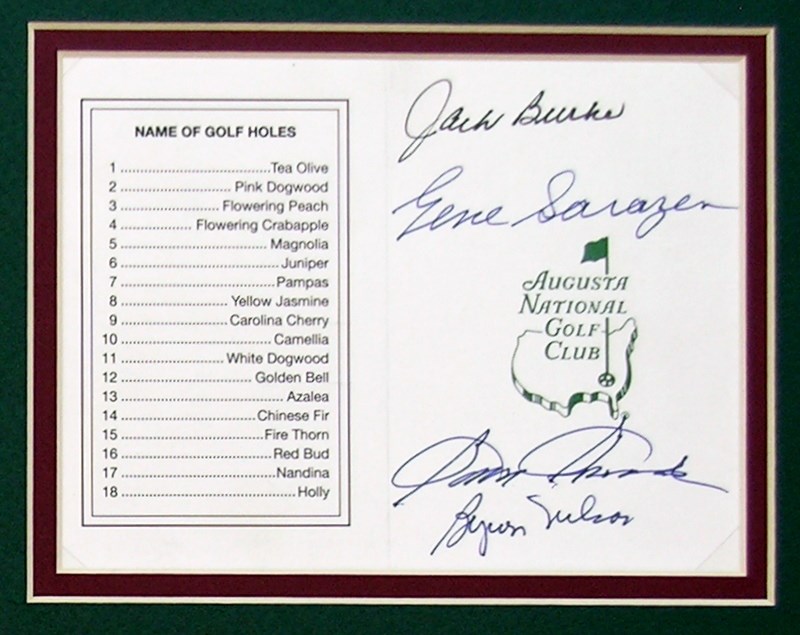 NAME OF GOLF HOLES
1 ........................................Tea Olive
2 ............................. Pink Dogwood
3 ...........................Flowering Peach
4 ................... Flowering Crabapple
5 ........................................Magnolia
6 ..........................................Juniper
7 .........................................Pampas
8 ..............................Yellow Jasmine
9 .............................Carolina Cherry
10 ........................................Camellia
11 ............................White Dogwood
12 ................................... Golden Bell
13 ............................................ Azalea
14 ....................................Chinese Fir
15 ......................................Fire Thorn
16 ........................................ Red Bud
17 .........................................Nandina
18 ..............................................Holly
Jack Burke
Gene Sarazen
AUGUSTA
NATIONAL
GOLF
CLUB
Byron Nelson